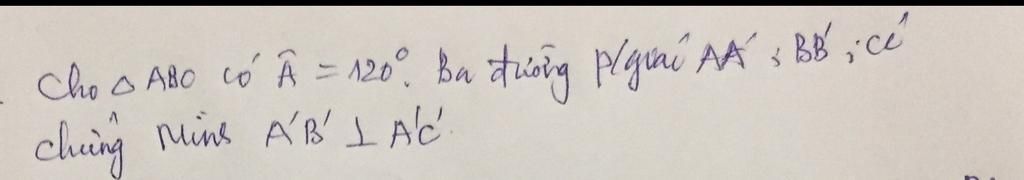 Cho △ ABC có Â = 120°. Ba đường p/giác AA' ; BB' ; CC'
chứng Minh A'B' ⊥ A'C'.